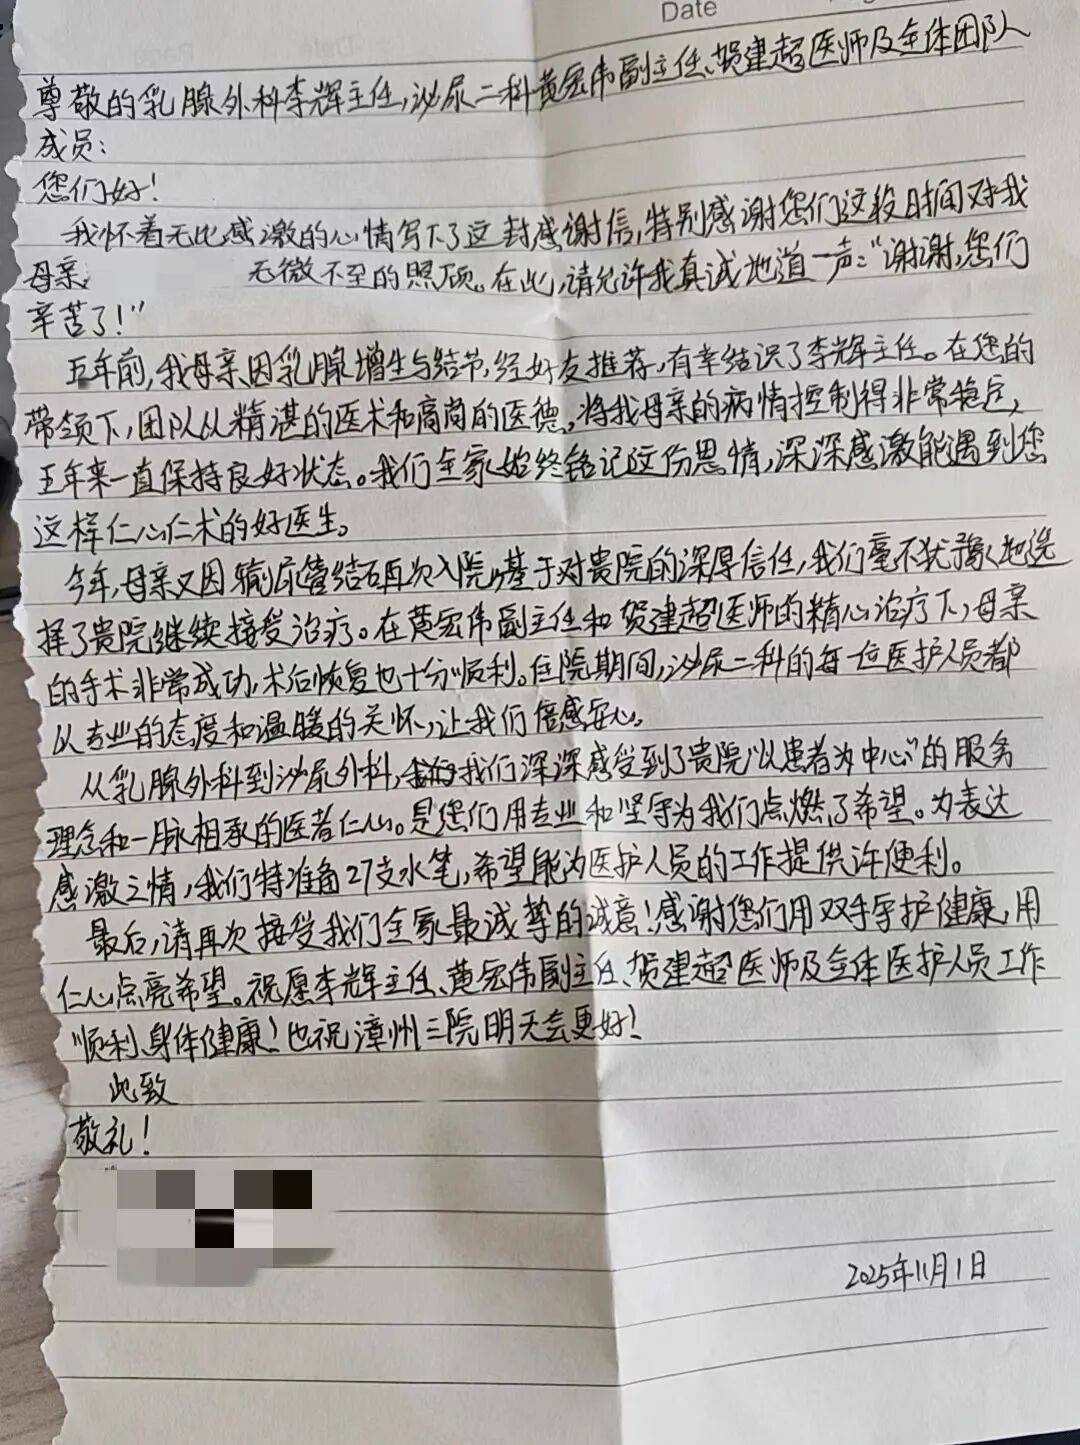 Date
尊敬的乳腺外科李辉主任,泌尿二科黄宏伟副主任、贺建超医师及全体团队
成员:
您们好!
我怀着无比感激的心情写下了这封感谢信,特别感谢您们这段时间对我
母亲 无微不至的照顾。在此,请允许我真诚地道一声:“谢谢,您们
辛苦了!”
五年前,我母亲因乳腺增生与结节,经好友推荐,有幸结识了李辉主任。在您的
带领下,团队以精湛的医术和高尚的医德,将我母亲的病情控制得非常稳定,
五年来一直保持良好状态。我们全家始终铭记这份恩情,深深感激能遇到您
这样仁心仁术的好医生。
今年,母亲又因输尿管结石再次入院,基于对贵院的深厚信任,我们毫不犹豫地选
择了贵院继续接受治疗。在黄宏伟副主任和贺建超医师的精心治疗下,母亲
的手术非常成功,术后恢复也十分顺利。住院期间,泌尿二科的每一位医护人员都
以专业的态度和温暖的关怀,让我们倍感安心。
从乳腺外科到泌尿外科,我们深深感受到了贵院“以患者为中心”的服务
理念和一脉相承的医者仁心。是您们用专业和坚守为我们点燃了希望。为表达
感激之情,我们特准备27支水笔,希望能为医护人员的工作提供许便利。
最后,请再次接受我们全家最诚挚的诚意!感谢您们用双手守护健康,用
仁心点亮希望。祝愿李辉主任、黄宏伟副主任、贺建超医师及全体医护人员工作
顺利,身体健康!也祝漳州三院明天会更好!
此致
敬礼!
2025年11月1日